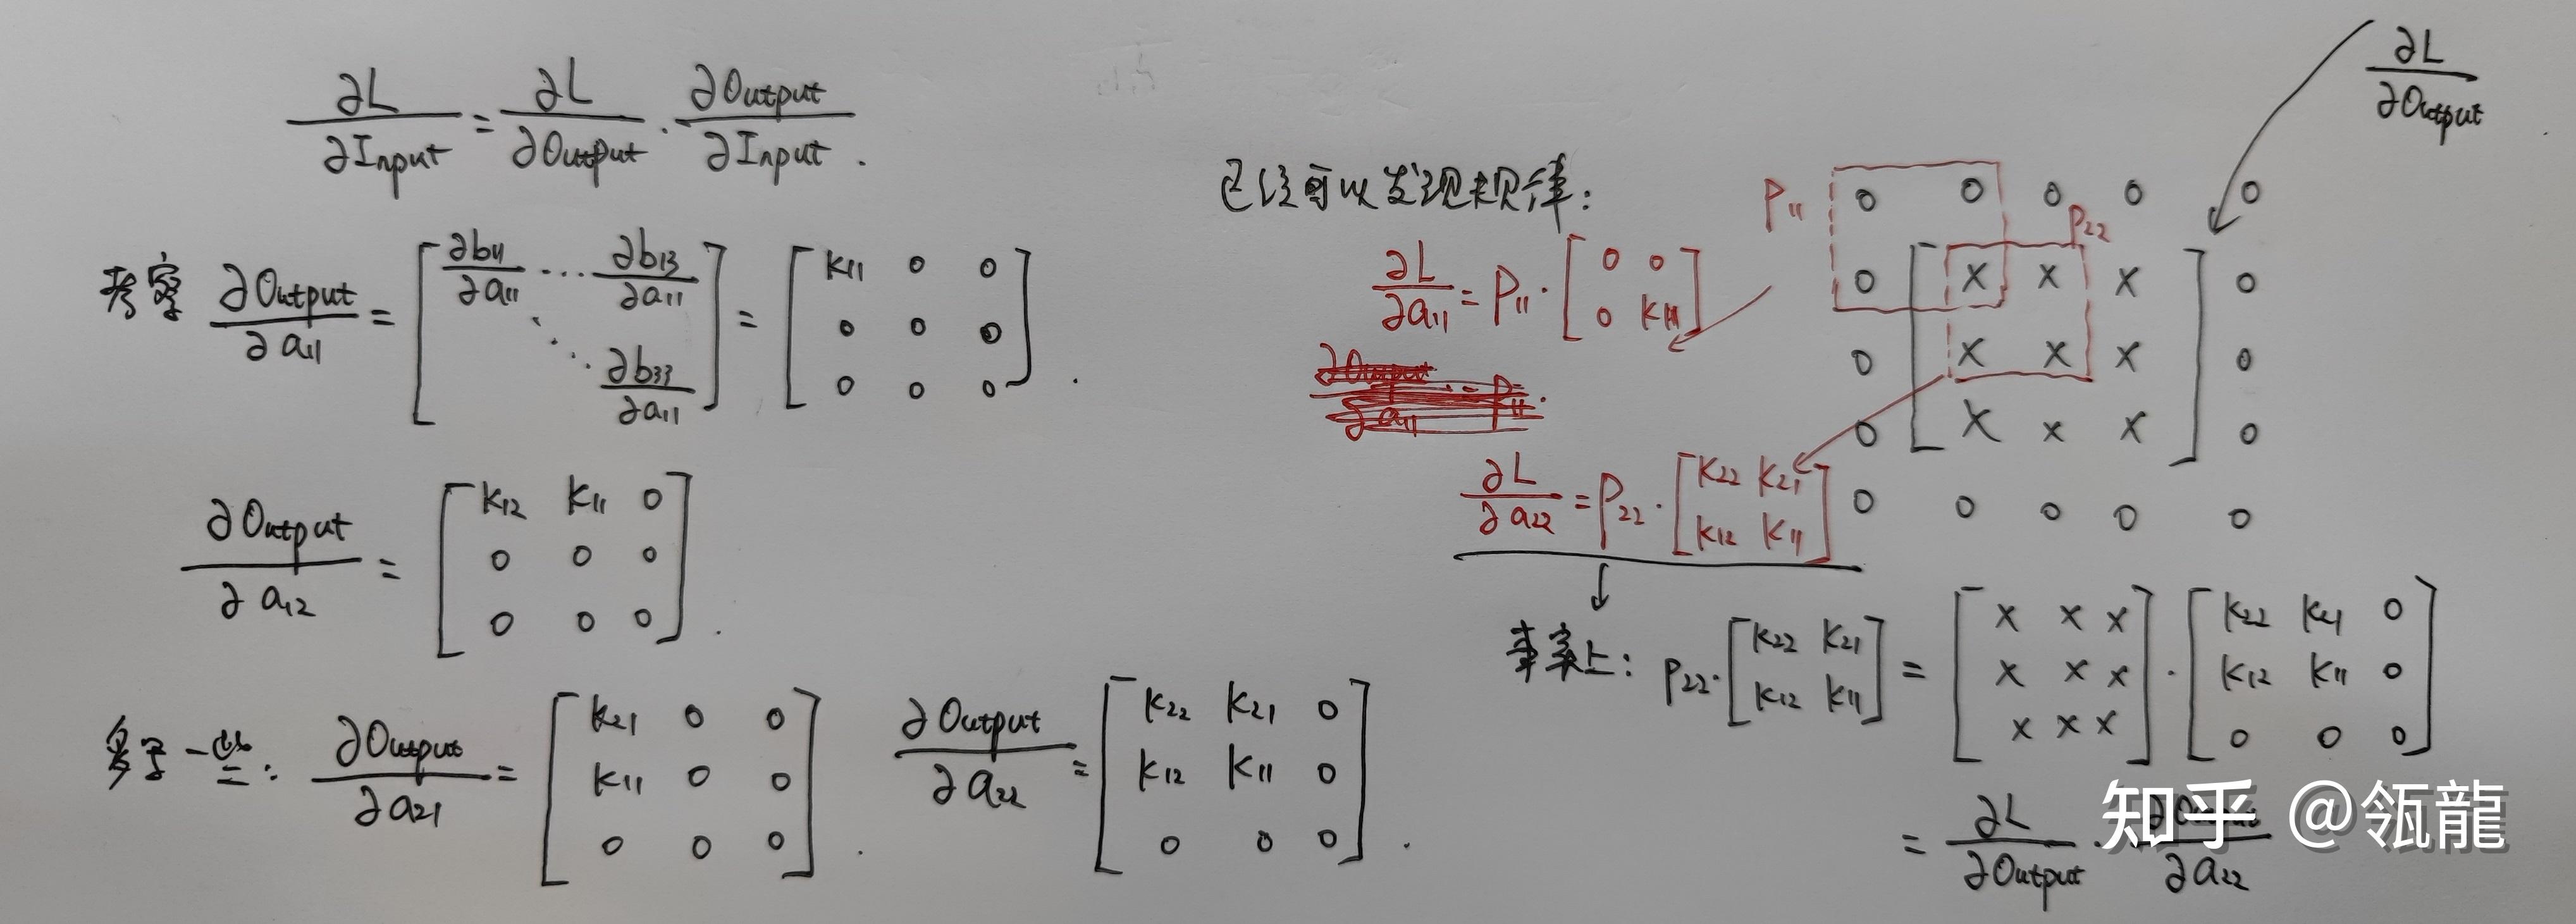 ∂L/∂Input = ∂L/∂Output · ∂Output/∂Input .
考察 ∂Output/∂a₁₁ = [∂b₁₁/∂a₁₁ ... ∂b₁₃/∂a₁₁ ⋱ ∂b₃₃/∂a₁₁] = [k₁₁ 0 0; 0 0 0; 0 0 0] .
∂Output/∂a₁₂ = [k₁₂ k₁₁ 0; 0 0 0; 0 0 0] .
多写一些: ∂Output/∂a₂₁ = [k₂₁ 0 0; k₁₁ 0 0; 0 0 0] . ∂Output/∂a₂₂ = [k₂₂ k₂₁ 0; k₁₂ k₁₁ 0; 0 0 0] .
已经可以发现规律:
∂L/∂a₁₁ = P₁₁ · [0 0; 0 k₁₁]
∂L/∂a₂₂ = P₂₂ · [k₂₂ k₂₁; k₁₂ k₁₁]
∂L/∂Output
P₁₁ 0 0 0 0 0
P₂₂
0 [x x x] 0
0 [x x x] 0
0 [x x x] 0
0 0 0 0 0
事实上: P₂₂ · [k₂₂ k₂₁; k₁₂ k₁₁] = [x x x; x x x; x x x] · [k₂₂ k₂₁ 0; k₁₂ k₁₁ 0; 0 0 0]
= ∂L/∂Output · ∂Output/∂a₂₂
知乎 @瓴龍